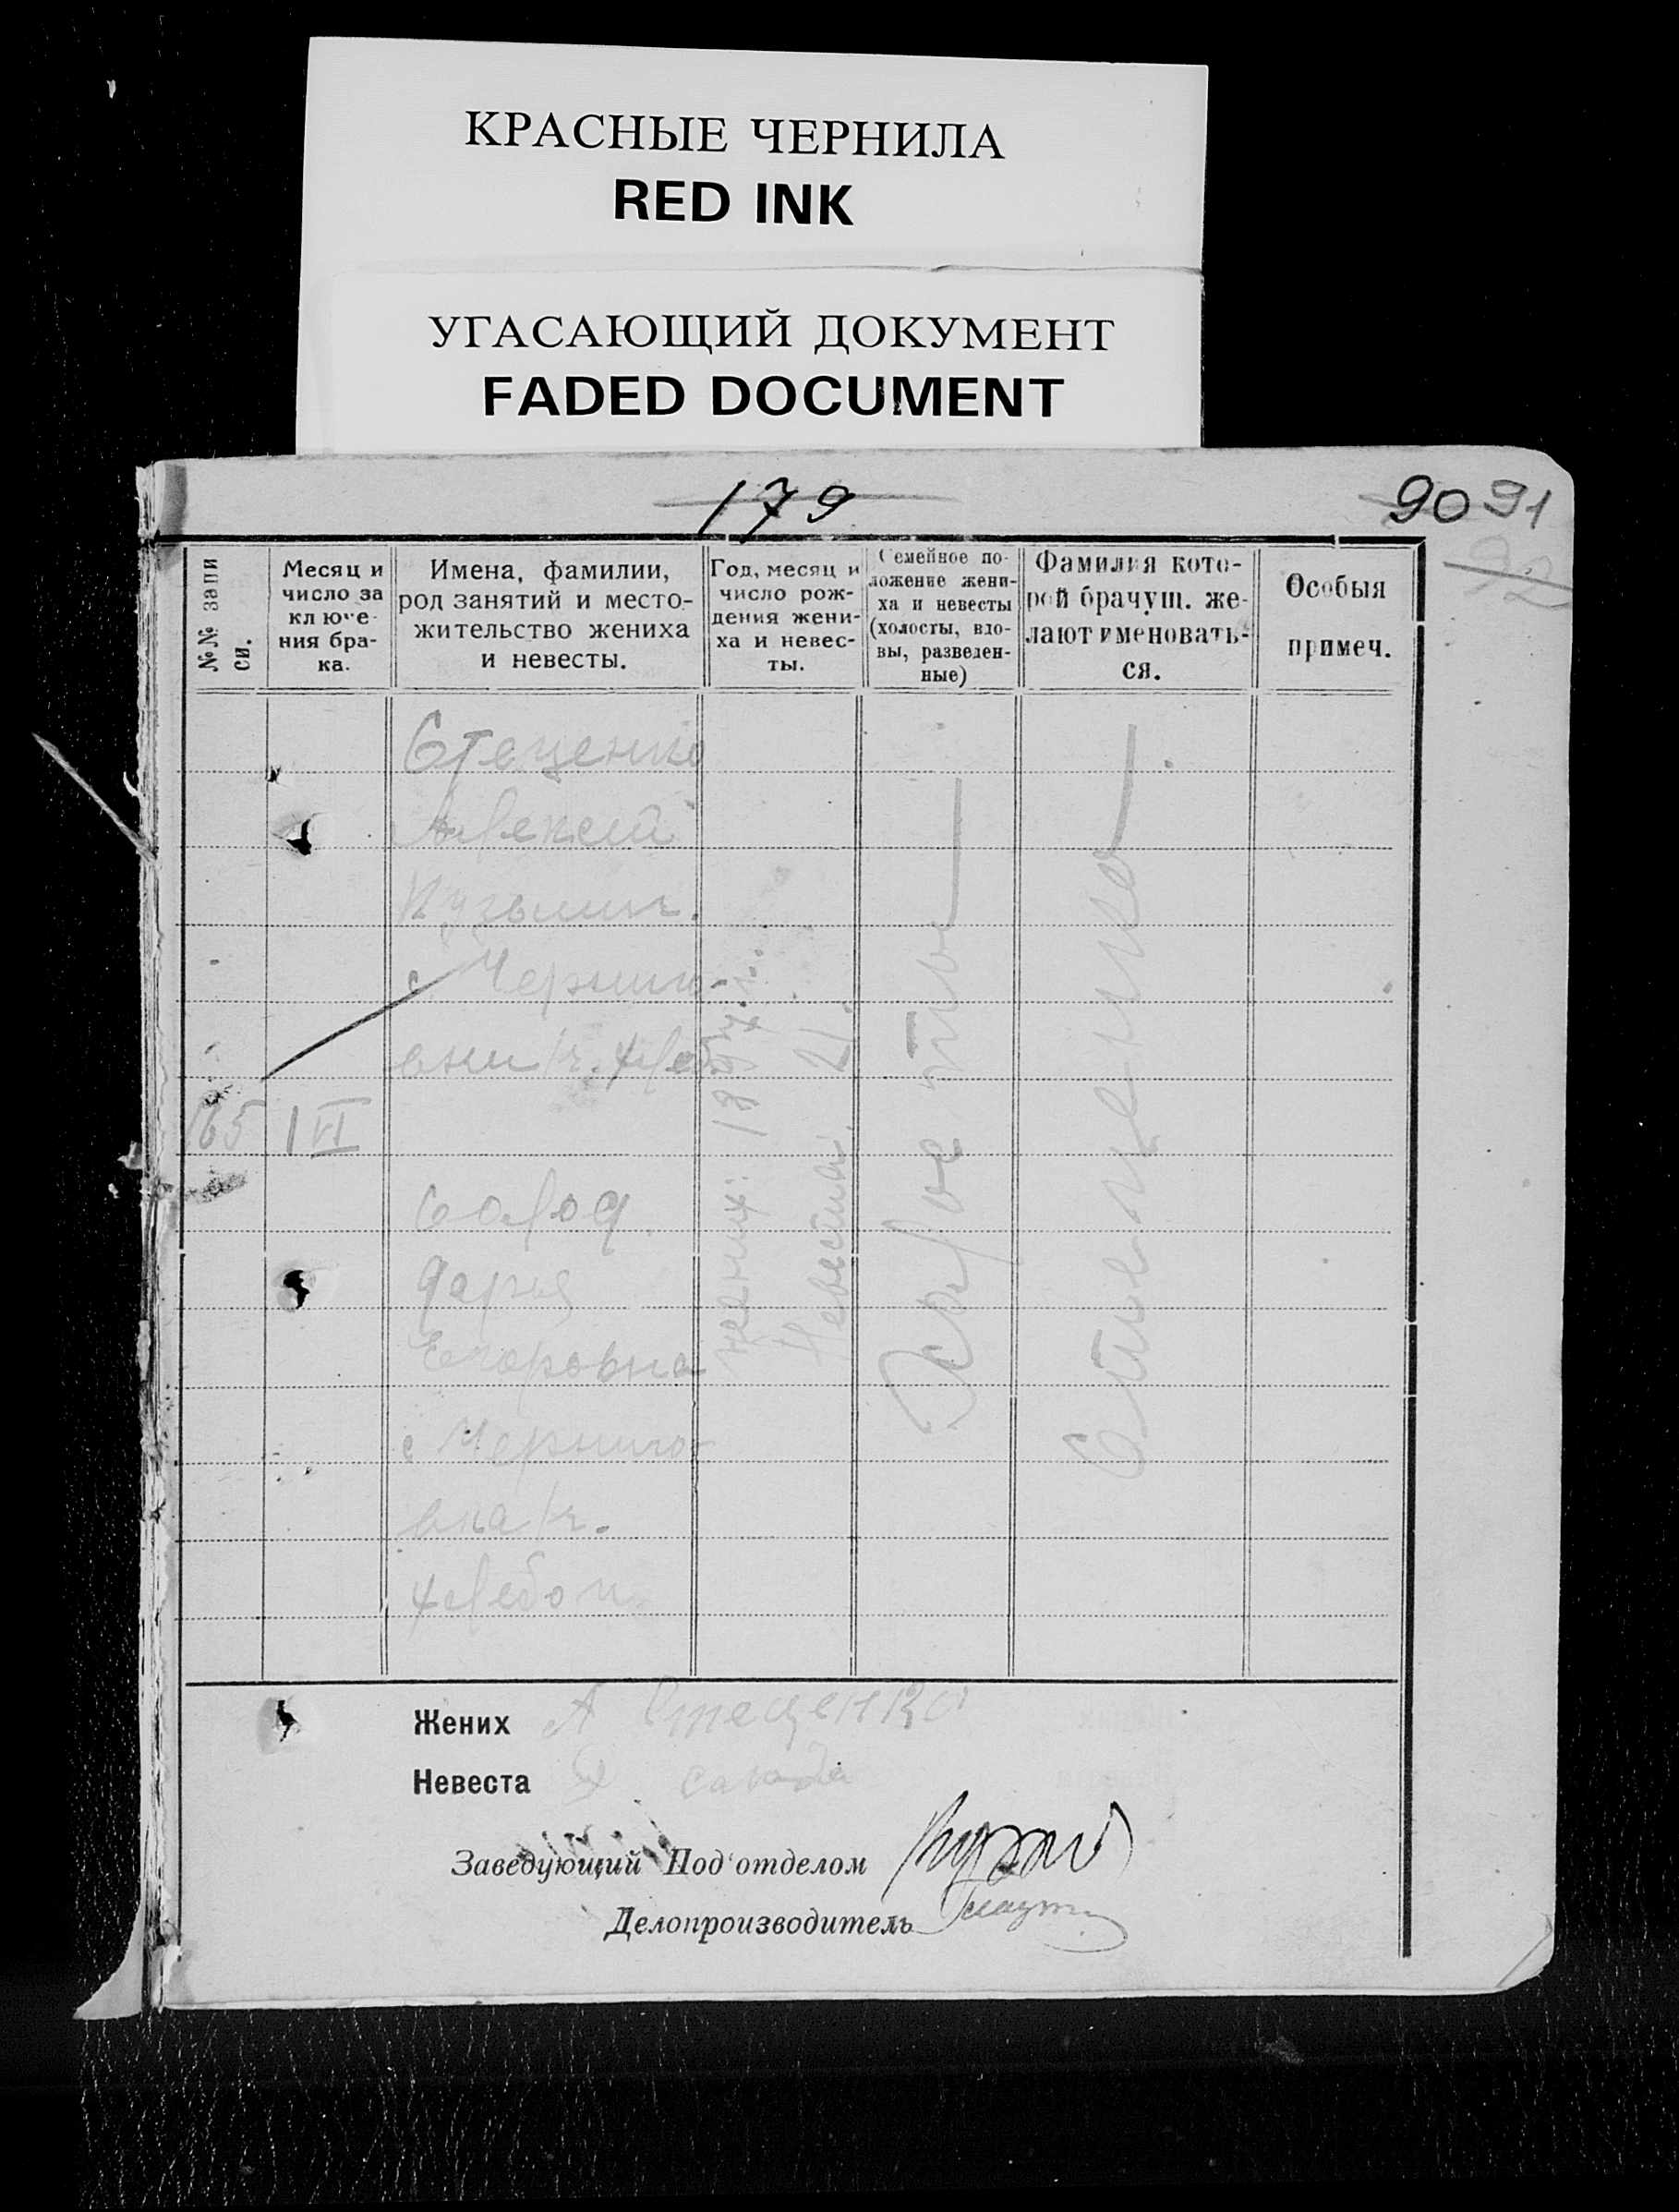 КРАСНЫЕ ЧЕРНИЛА
RED INK
УГАСАЮЩИЙ ДОКУМЕНТ
FADED DOCUMENT
179
90 91
92
№№ запи
си.
Месяц и
число за
ключе-
ния бра-
ка.
Имена, фамилии,
род занятий и место-
жительство жениха
и невесты.
Год, месяц и
число рож-
дения жени-
ха и невес-
ты.
Семейное по-
ложение жени-
ха и невесты
(холосты, вдо-
вы, разведен-
ные)
Фамилия кото-
рой брачущ. же-
лают именовать-
ся.
Особыя
примеч.
165
1 VI
Стеценко
Алексей
Кузьмич.
с. Черниго-
вки
Солод
Дарья
Егоровна
с Черниго-
вка
хлебоп.
жених: 18
Невеста: 21.
Холосты
Стеценко
Жених А Стеценко
Невеста
Заведующий Под'отделом
Делопроизводитель